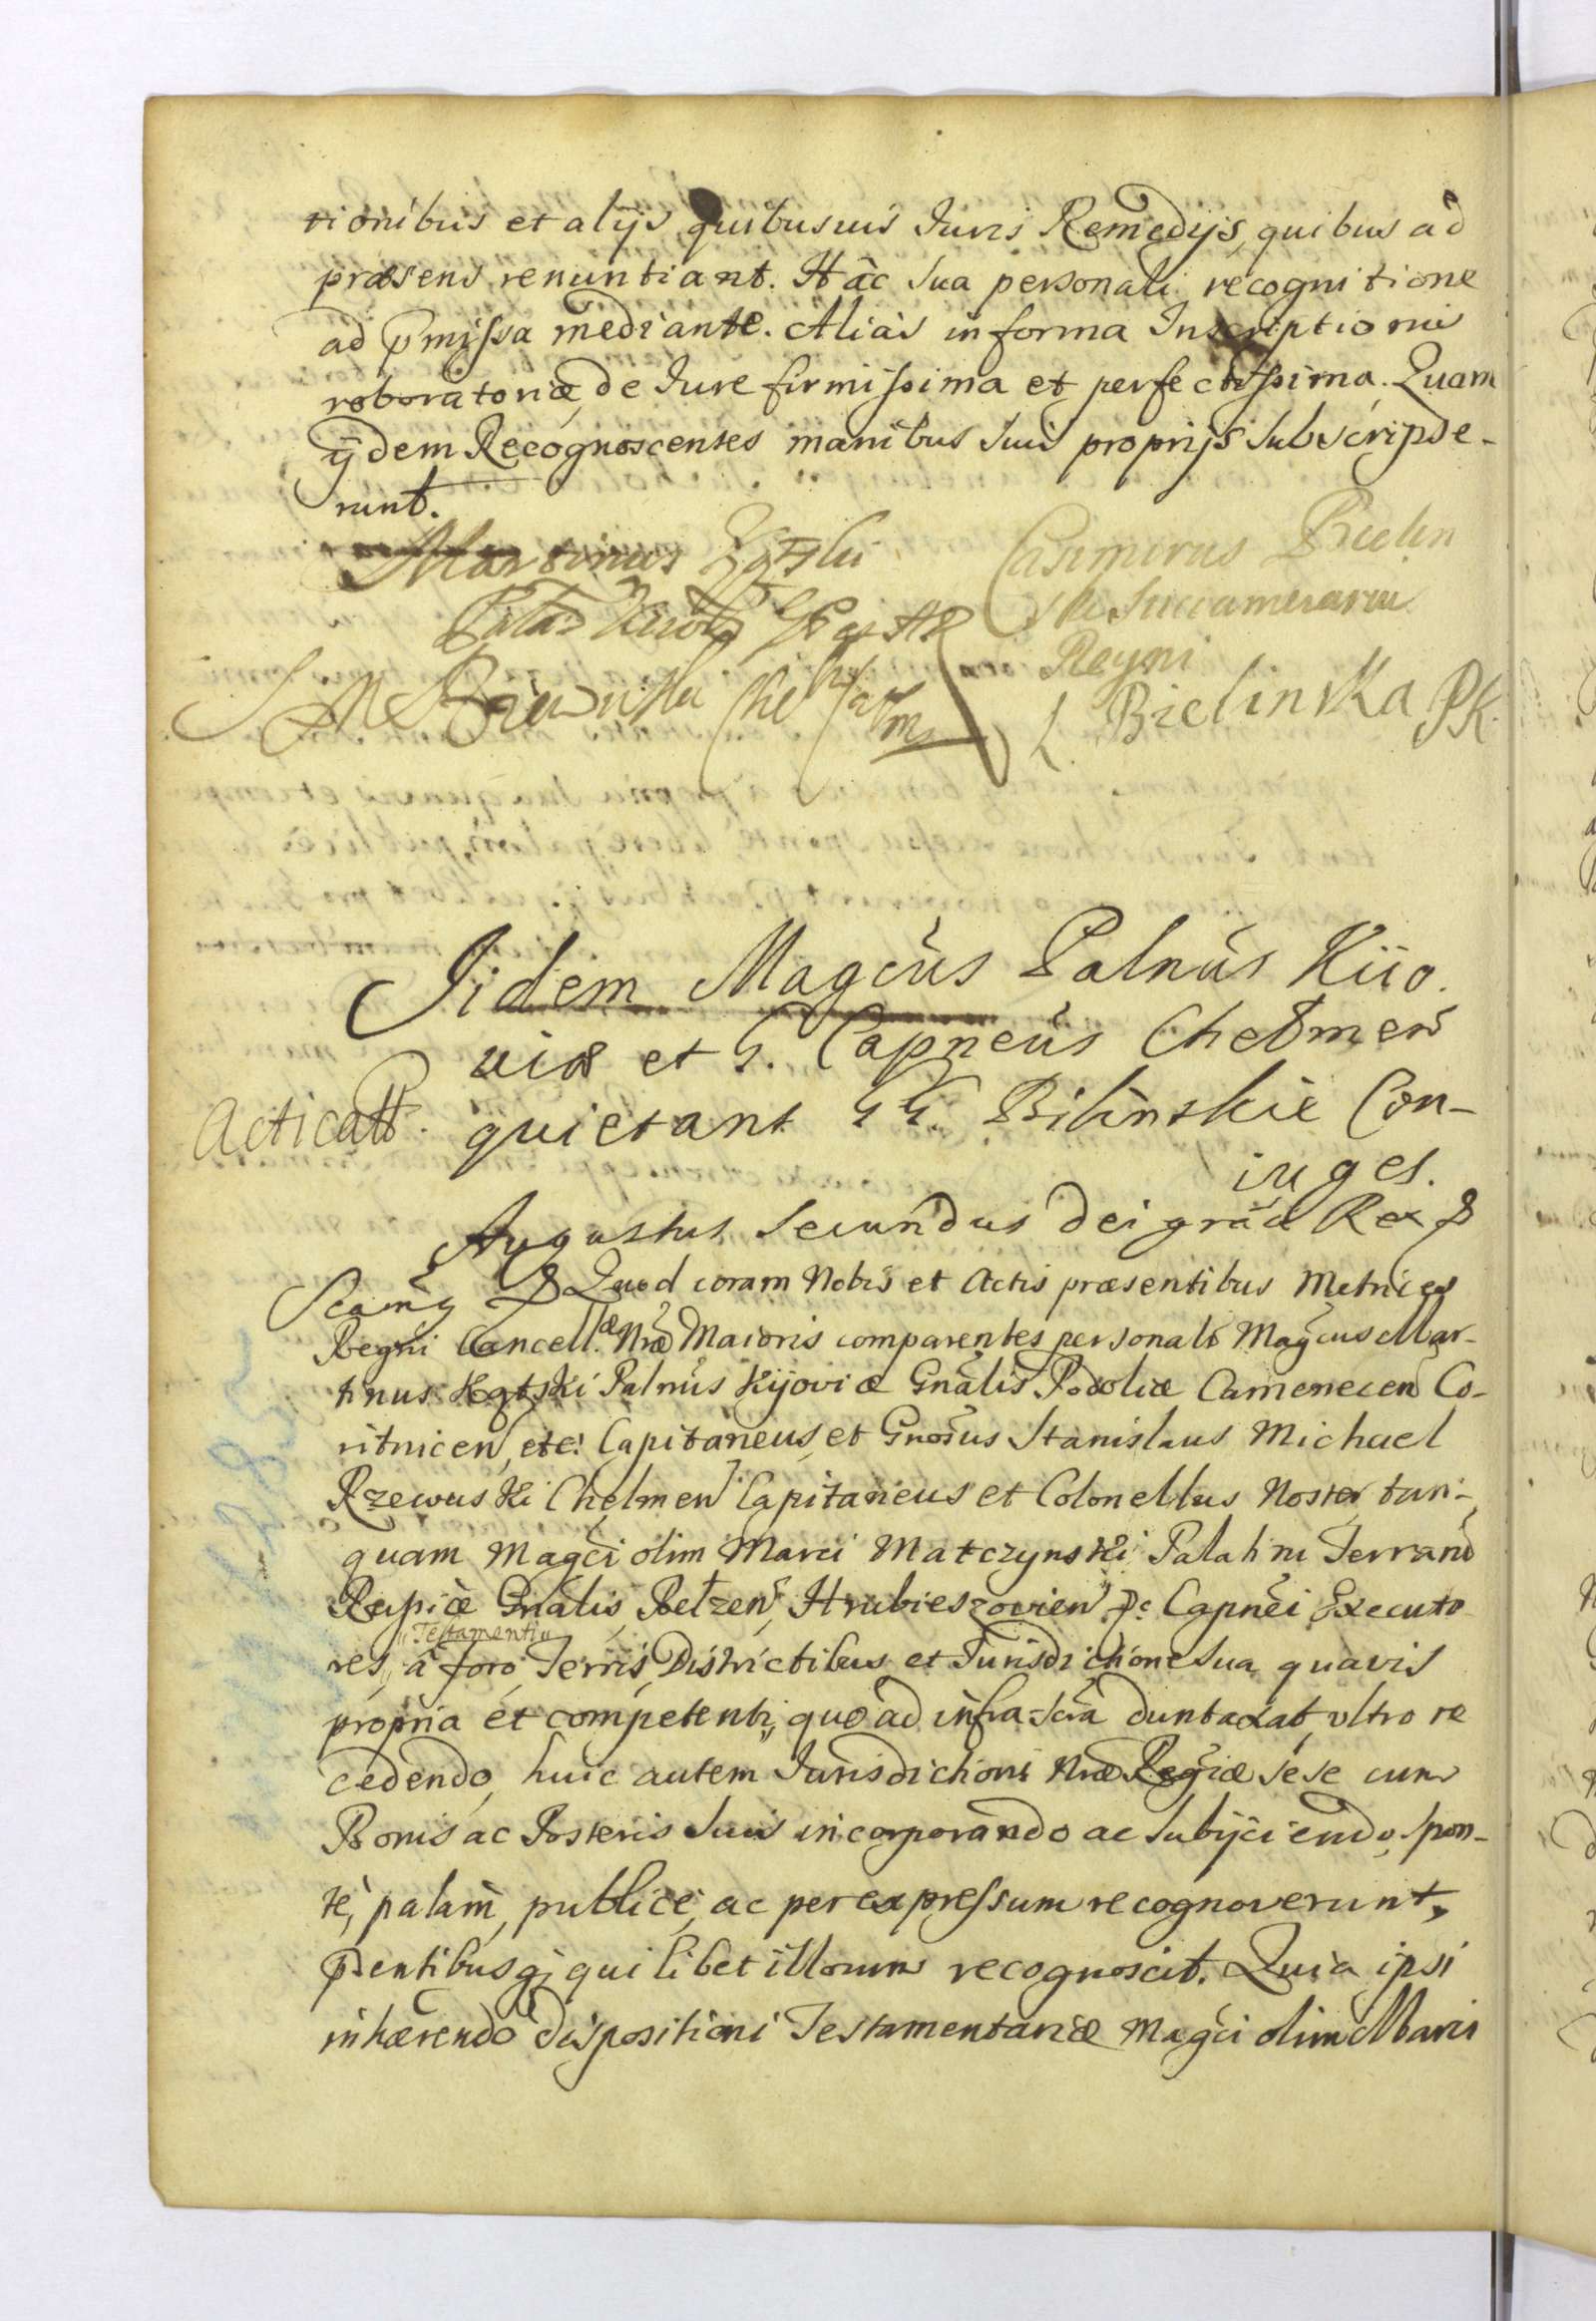 tionibus et alijs quibusuis Iuris Remedijs quibus ad
præsens renuntiant. Hàc sua personali recognitione
ad p̄missa mediante. Alias in forma Inscriptionis
roboratoriæ de Iure firmissima et perfectissima. Quam
ijdem Recognoscentes manibus suis proprijs subscripse-
runt.
Martinus Kątski
Casimirus Bielin
ski Succamerarius
Regni
S M Rzewuski Che
L Bielinska PK.
Iidem Magcus Palnus Kiio.
viæ et G. Capneus Chełmen
Acticatt.
quietant GG. Bilinskie Con-
iuges.
Augustus Secundus Dei grãa Rex &
Quod coram Nobis et Actis præsentibus Metrices
Regni Cancell.æ Nræ Maioris comparentes personalr Magcus Mar-
tinus Kątski Palnus Kijoviæ Gnalis Podoliæ Camenecen Co-
ritnicen, etc: Capitaneus, et Gnosus Stanislaus Michael
Rzewuski Chelmen Capitaneus et Colonellus Noster tan-
quam Magci olim Marci Matczynski Palatini Terrarũ
Rusiæ Gnalis Bełzen, Hrubieszovien &c Capnei Executo
"Testamenti"
res, à foro Terris, Districtibus et Iurisdictione sua quavis
propria et competenti, quo ad infra scra duntaxat, ultro re
cedendo, huic autem Iurisdictioni Nræ Regiæ sese cum
Bonis ac Posteris suis incorporando ac subijciendo, spon-
te, palam, publicè, ac per expressum recognoverunt,
p̄sentibusq; quilibet illorum recognoscit. Quia ipsi
inhærendo dispositioni Testamentariæ Magci olim Marci